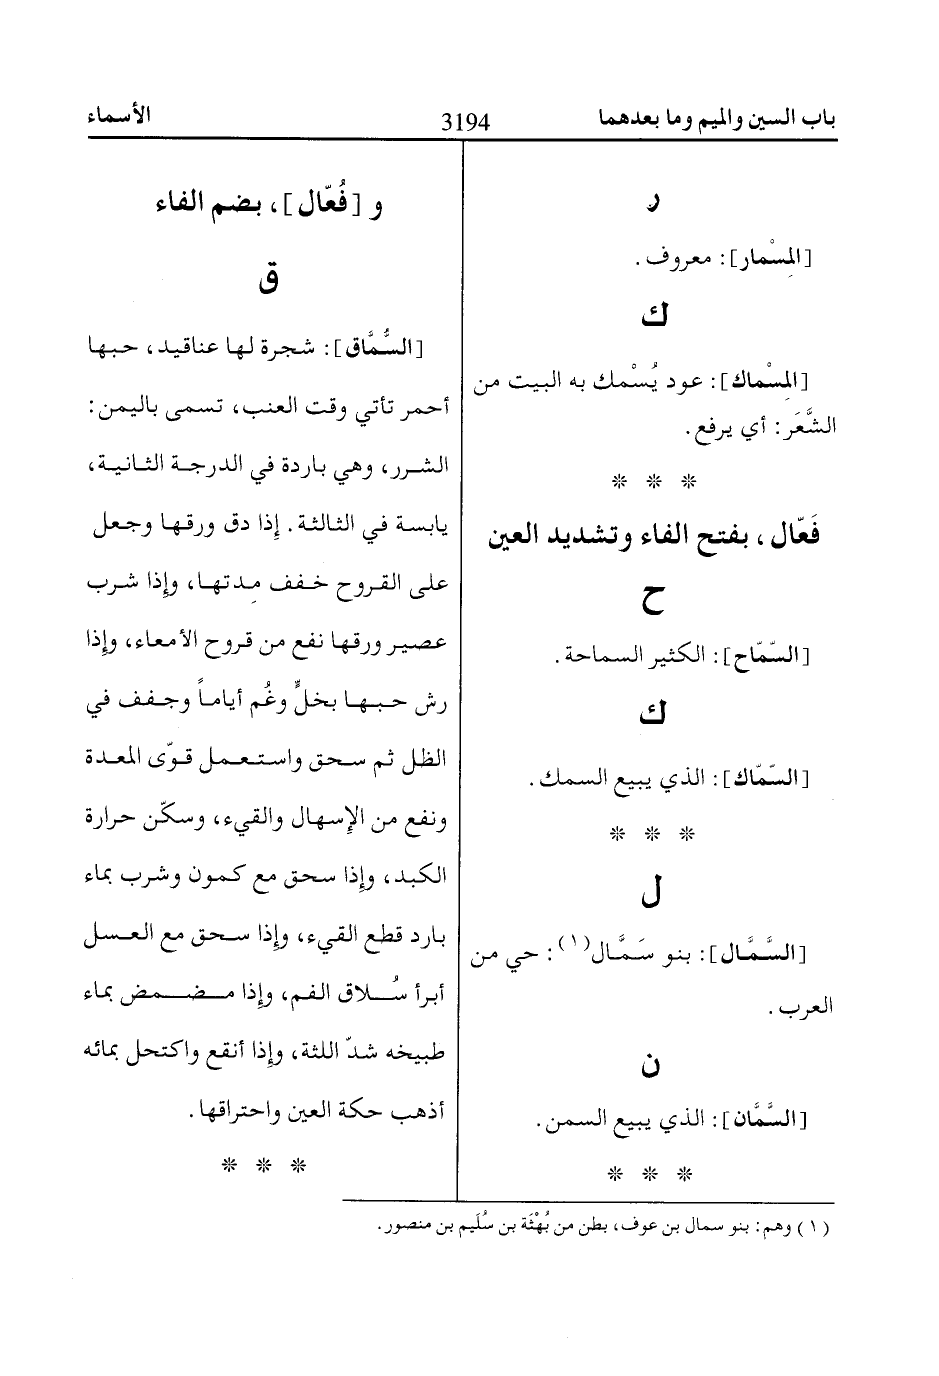 باب السين والميم وما بعدهما
3194
الأسماء
ر
[المِسْمار]: معروف.
ك
[المِسْماك]: عود يُسْمك به البيت من
الشَّعَر: أي يرفع.
* * *
فَعّال، بفتح الفاء وتشديد العين
ح
[السّمّاح]: الكثير السماحة.
ك
[السّمّاك]: الذي يبيع السمك.
* * *
ل
[السَّمَّال]: بنو سَمَّال(١): حي من
العرب.
ن
[السَّمَّان]: الذي يبيع السمن.
* * *
و [فُعّال]، بضم الفاء
ق
[السُّمَّاق]: شجرة لها عناقيد، حبها
أحمر تأتي وقت العنب، تسمى باليمن:
الشرر، وهي باردة في الدرجة الثانية،
يابسة في الثالثة. إذا دق ورقها وجعل
على القروح خفف مِدتها، وإذا شرب
عصير ورقها نفع من قروح الأمعاء، وإذا
رش حبها بخلٍّ وغُم أياماً وجفف في
الظل ثم سحق واستعمل قوّى المعدة
ونفع من الإسهال والقيء، وسكّن حرارة
الكبد، وإذا سحق مع كمون وشرب بماء
بارد قطع القيء، وإذا سحق مع العسل
أبرأ سُلاق الفم، وإذا مضمض بماء
طبيخه شدّ اللثة، وإذا أنقع واكتحل بمائه
أذهب حكة العين واحتراقها.
* * *
(١) وهم: بنو سمال بن عوف، بطن من بُهْثَة بن سُلَيم بن منصور.